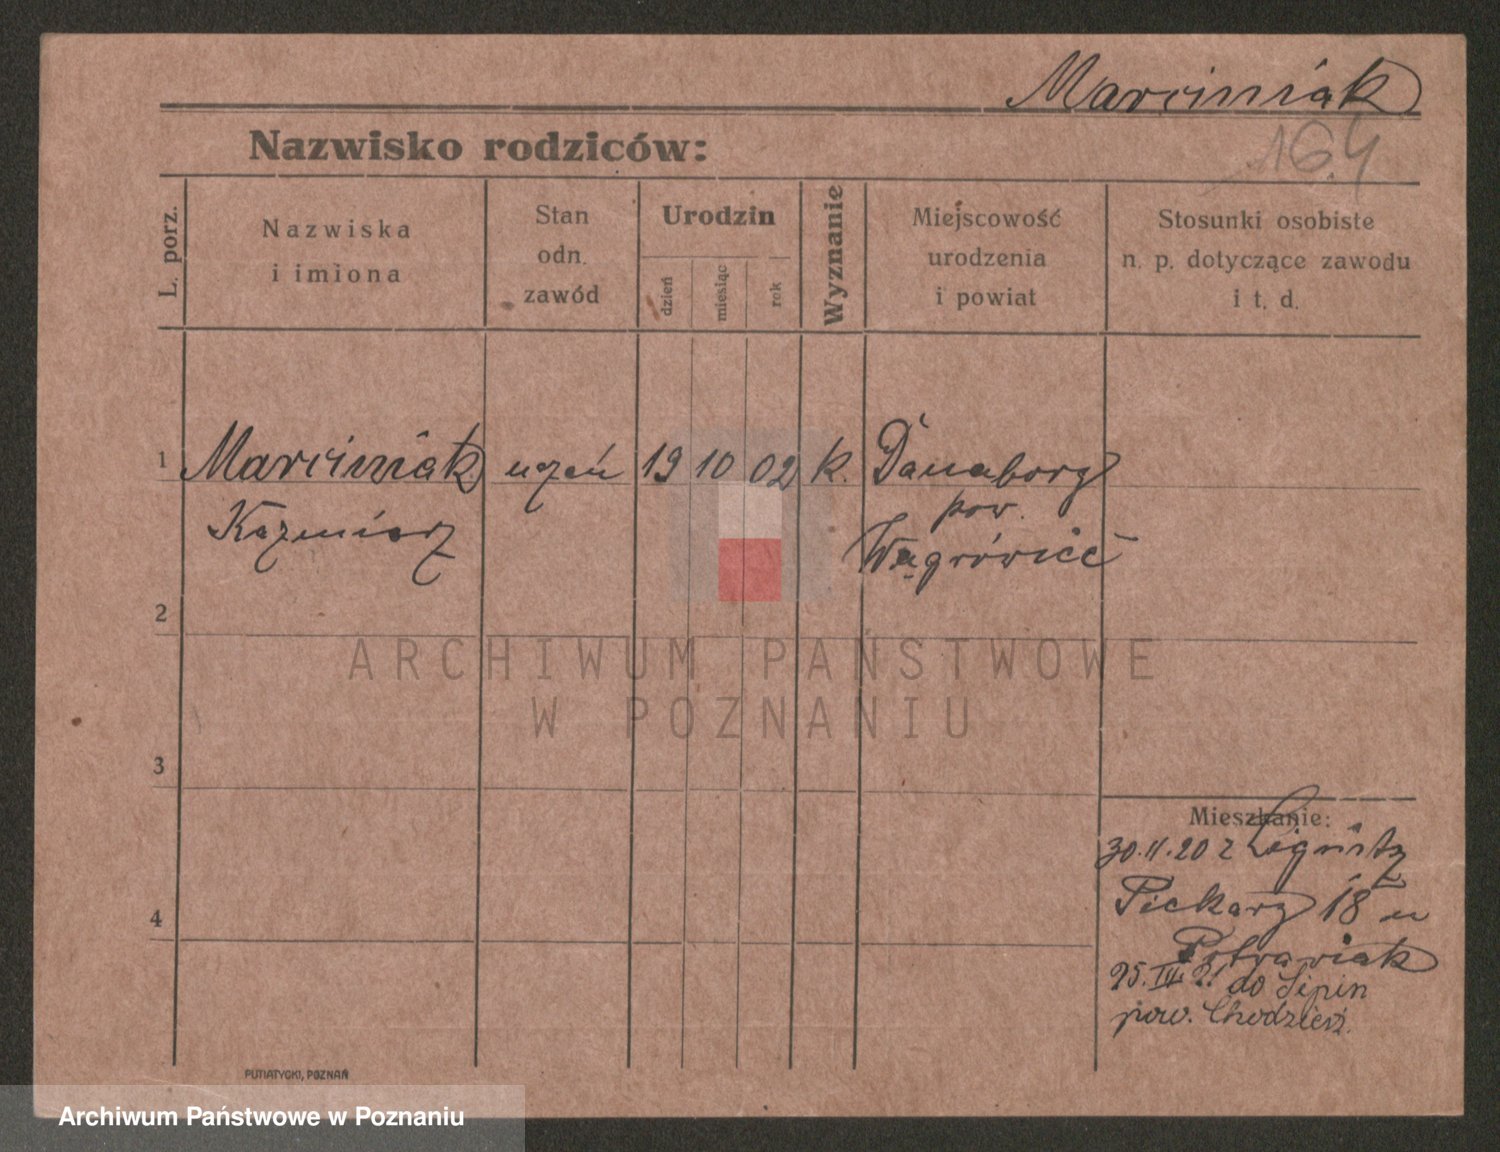 Marciniak
164
Nazwisko rodziców:
L. porz.
Nazwiska
i imiona
Stan
odn.
zawód
Urodzin
dzień
miesiąc
rok
Wyznanie
Miejscowość
urodzenia
i powiat
Stosunki osobiste
n. p. dotyczące zawodu
i t. d.
1 Marciniak uczeń 19 10 02 k. Danaborz
Kazmierz pow.
Wągrówiec
2
ARCHIWUM PAŃSTWOWE
W POZNANIU
3
Mieszkanie:
30.11.20 z
Piekary 18 u
4
Potrawiak
25.III.21 do Lipin
pow. Chodzież.
PUTIATYCKI, POZNAŃ
Archiwum Państwowe w Poznaniu